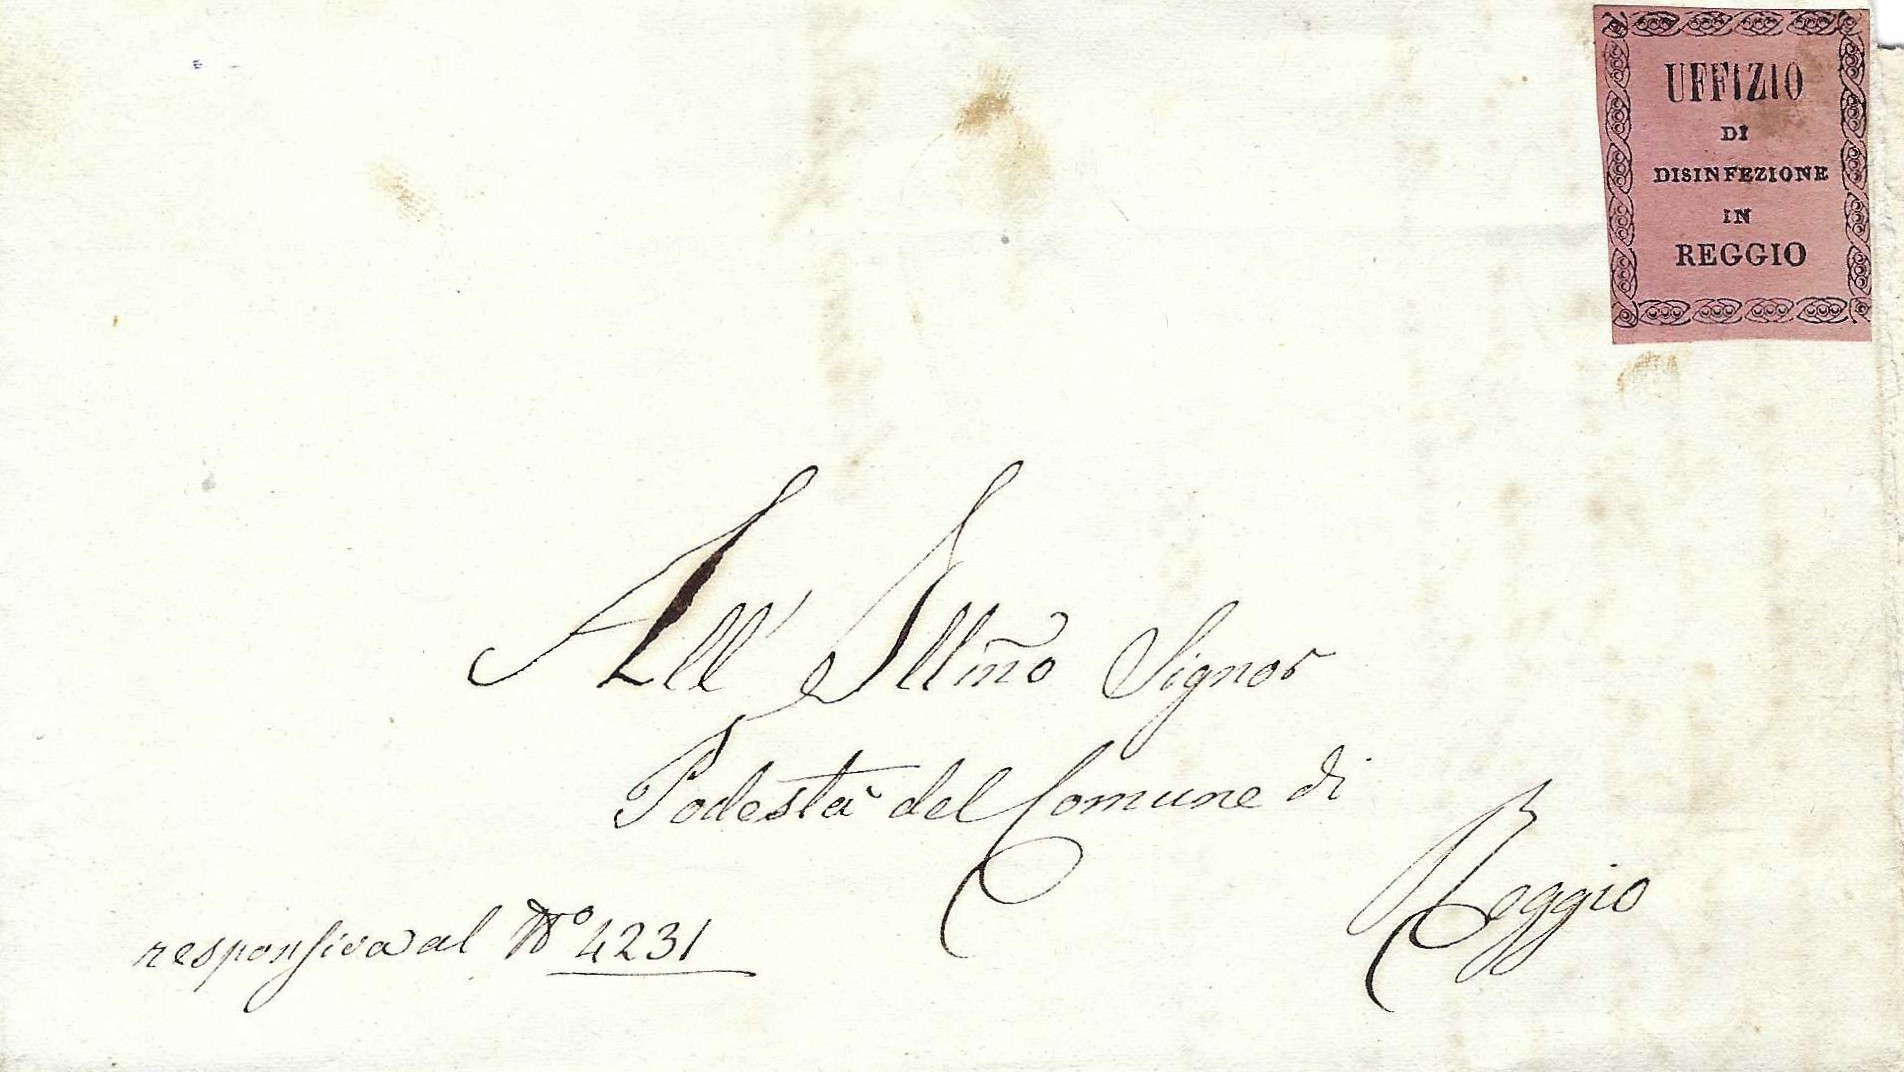 UFFIZIO
DI
DISINFEZIONE
IN
REGGIO
All' Illm̃o Signor
Podestà del Comune di
Reggio
responsiva al Nº 4231